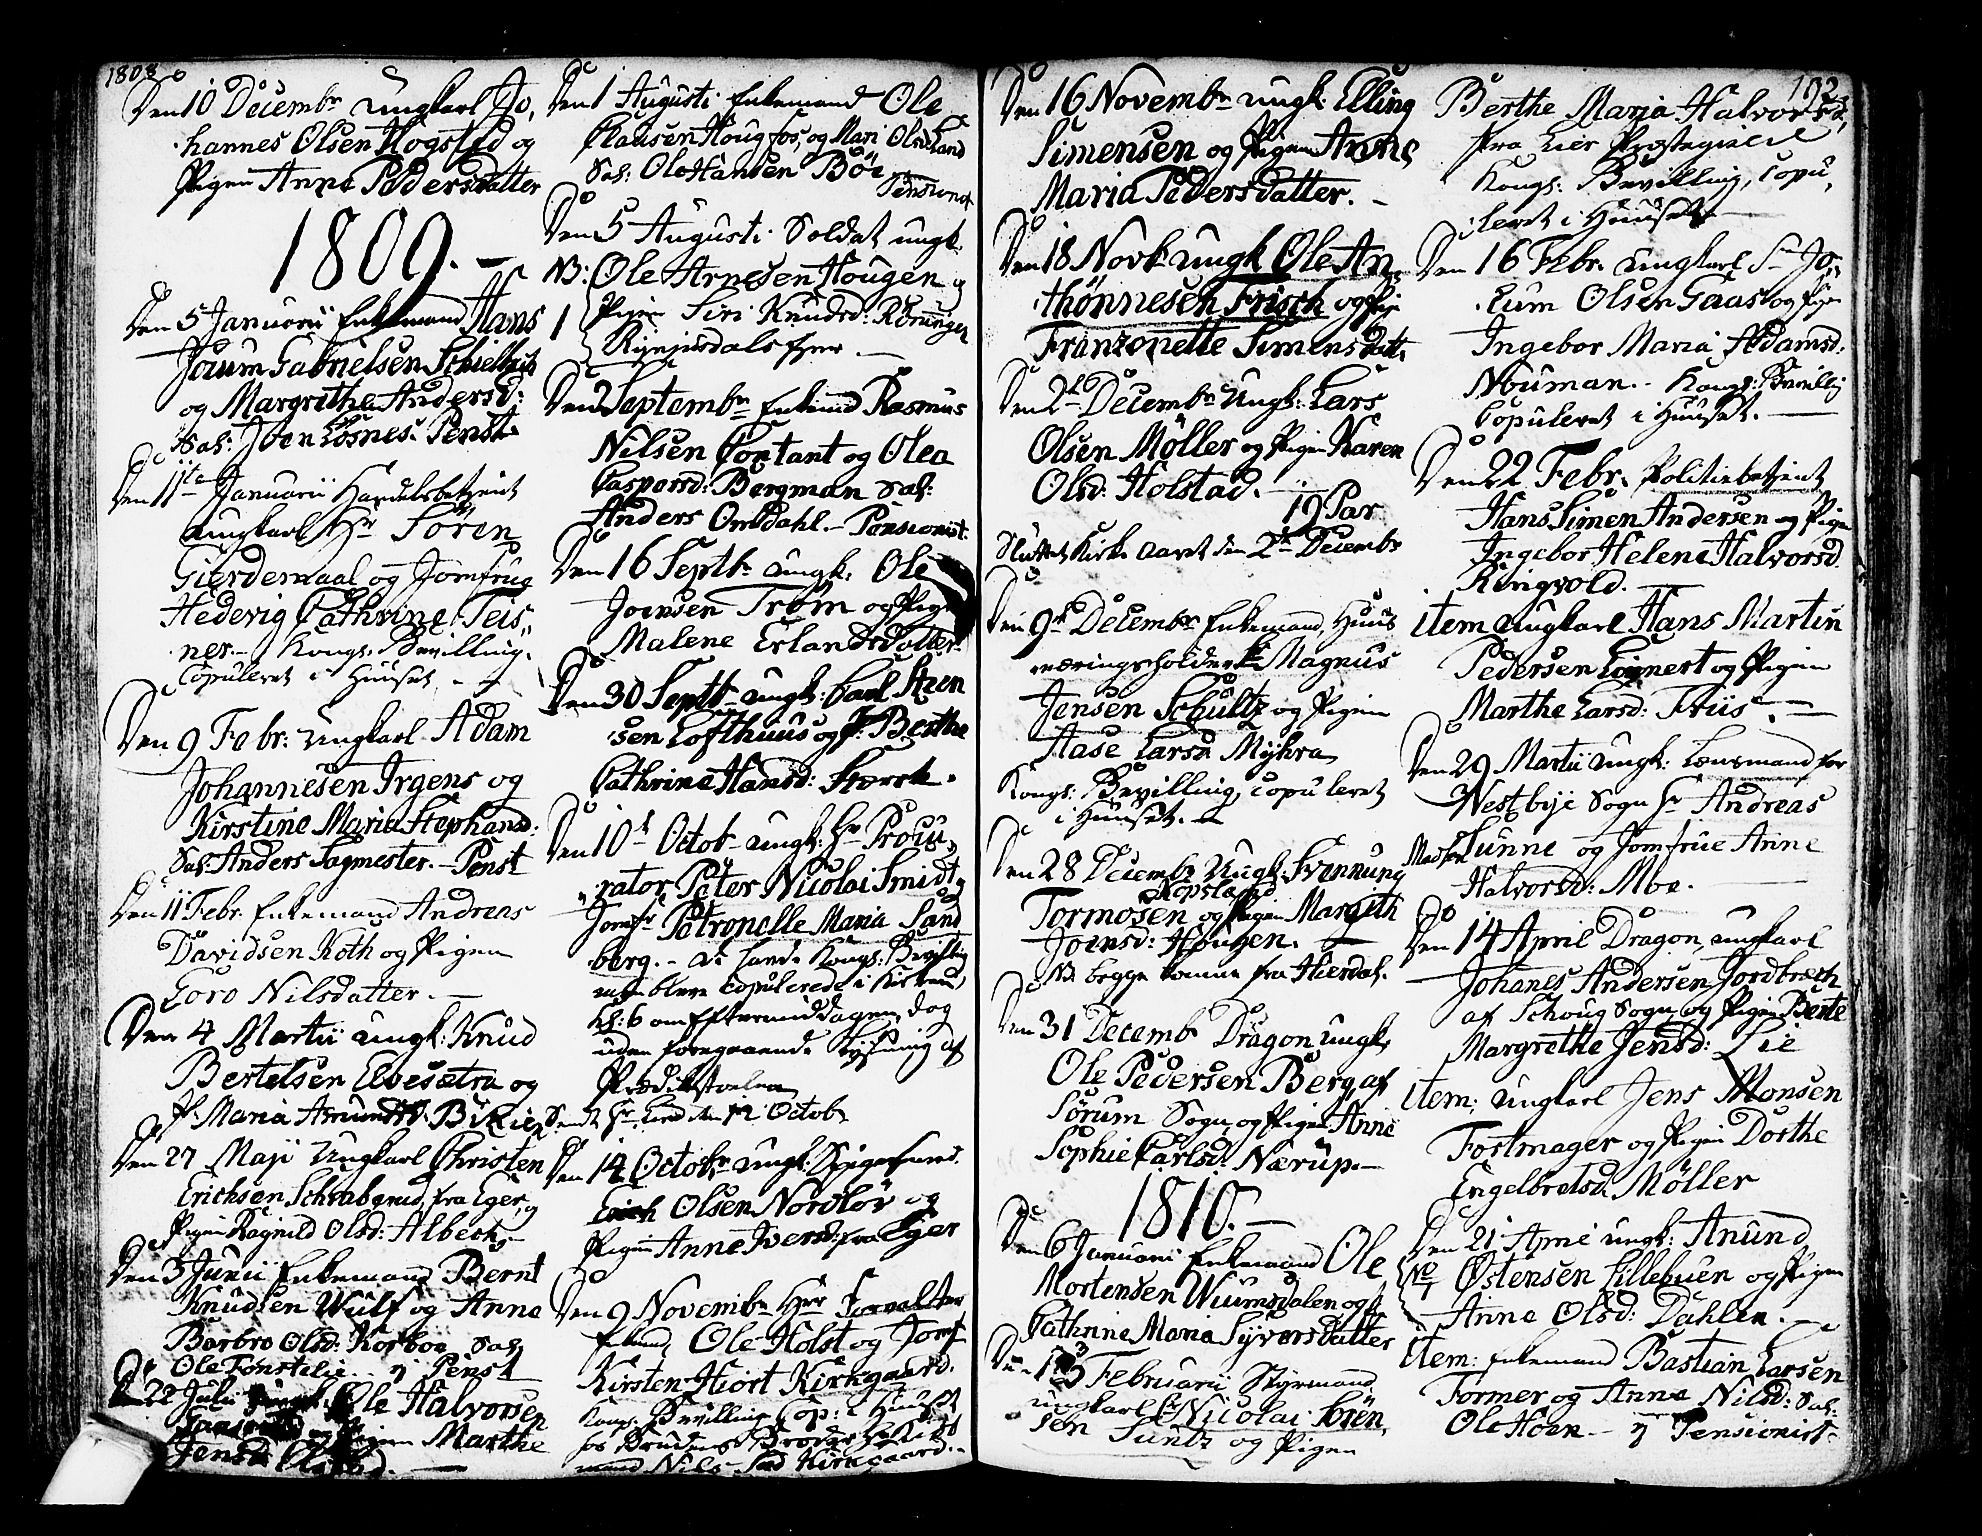 1808
Den 10 Decembr ungkarl Jo,
hannes Olsen Hogstad og
Pigen Anne Pedersdatter
1809. —
Den 5 Januarii Enkemand Hans
Joium Gabrielsen
og Margrithe Andersd:
Sal: Joen Losnes. Penst.
Den 11te Januarii Handelsbetient
ungkarl Hr Sören
Gierdemaal og Jomfrug
Hedevig Cathrine Teis,,
ner. – Kongs: Bevilling.
Copuleret i Huuset —
Den 9 Febr: ungkarl Adam
Johannesen Irgens og
Kirstine Maria Stephansd:
Sal: Anders Sagmester. – Penst
Den 11 Febr. Enkemand Andreas
Davidsen Roth og Pigen
Loro Nilsdatter. —
Den 4 Martii ungk: Knud
Bertelsen Elvesætra og
P: Maria Amundsd:
Den 27 Maji ungkarl Christen
Erichsen Schrabgrud, fra Eger, og
Pigen Ragnild Olsd: Albeck
Den 3 Junii Enkemand Bernt
Knudsen Wulf og Anna
Barbro Olsd: Korboe Sal:
Ole – Penst
22 Juli Ole Halvorsen
Pigen Marthe
Jensd:
Den 1 Augusti Enkemand Ole
Clausen Hougfos, og Mari Olsd: Land
Sal: Ole Hansen Böe
Pensionst
Den 5 Augusti Soldat ungk.
NB: Ole Arnesen Hougen og
1 Pigen Siri Knudsd: Rönningen

Den 2 Septembr Enkemd Rasmus
Nilsen Contant og Olea
Caspersd: Bergman Sal:
Anders Omdahl. – Pensionist.
Den 16 Septbr ungk: Ole
Joensen Tröm og Pigen
Malene Erlandsdatter
Den 30 Septbr ungk: Carl Steen
sen Lofthuus og P: Berthe
Cathrina Hansd: Stærck.
Den 10d Octob ungk: Hr Procu,,
,,rator Peter Nicolai Smidt og
Jomfr Petronelle Maria Sand
berg. – De havde Kongs: Bevilling
men bleve Copulerede i Kirken,
Kl: 6 om Eftermiddagen, dog
uden foregaaende Lysning af
Prædikestoelen
Sendt Hr Lind den 12 Octob
Den 14 Octobr ungk:
Erich Olsen Nordlöv og
Pigen Anne Iversd: fra Eger
Den 9 Novembr Herr Forvalter
Enkemd Ole Holst og Jomf
Kirsten Hiort Kirkgaard.
Kongs: Bevilling Cop: i Huuset
hos Brudens Broder
mand Nils Kirkgaard. –
Den 16 Novembr ungk: Elling
Simensen og Pigen Anne
Maria Pedersdatter. –
Den 18 Novbr ungk Ole An,
thönnesen Frisch og Pige
Franzonette Simensdatt.
Den 2d Decembr Ungk: Lars
Olsen Möller og Pigen Karen
Olsd: Holstad. –
19 Par
Sluttet Kirke aaret den 2d Decembr
Den 9d Decembr Enkemand, Huus
næringsholder Hr Magnus
Jensen Schultz og Pigen
Aase Larsd: Myhra
Kongs: Bevilling, copuleret
i Huuset. —
Den 28 Decembr Ungk: Svennung
Nepsland
Tormosen og Pigen Margith
Joensd: Hougen. —
NB begge komne fra Hierdal.
Den 31 Decemb Dragon ungk,
Ole Pedersen Berg, af
Sörum Sogn, og Pigen Anne
Sophie Carlsd: Nærup. –
1810. —
Den 6 Januarii Enkemand Ole
Mortensen Wiumsdalen og P
Cathrine Maria Syversdatter
Den 13 Februarii Styrmand
ungkarl Hr Nicolai Sören,
sen Suntz og Pigen
192
Berthe Maria Halvorsd,
fra Lier Præstegield
Kongs: Bevilling, copu,
leret i Huuset. —
Den 16 Febr. ungkarl Sr Jo,,
,,cum Olsen Gaas og Pigen
Ingebor Maria Adamsd:
Nouman. – Kongs: Bevilling
Copuleret i Huuset. —
Den 22 Febr. Politiebetjent
Hans Simen Andersen og Pigen
Ingebor Helene Halvorsd
Ringvold.
item ungkarl Hans Martin
Pedersen Lonnert og Pigen
Marthe Larsd: Friis. —
Den 29 Martii ungk: Lensmand for
Westbye Sogn Hr Andreas
Madsen Sunne og Jomfrue Anne
Halvorsd: Moe. —
Den 14 April Dragon, ungkarl
Johanes Andersen Jordbræch
af Schoug Sogn, og Pigen Berte
Margrethe Jensd: Lie
item: ungkarl Jens Monsen
Fostmager og Pigen Dorthe
Engelbretsd. Möller
Den 21 April ungk: Anund
No 1 Østensen Lillebuen og Pigen
Anne Olsd: Dahlen. —
item: Enkemand Bastian Larsen
Tormer og Anne Nilsd: Sal:
Ole Hoen. – Pensionist –